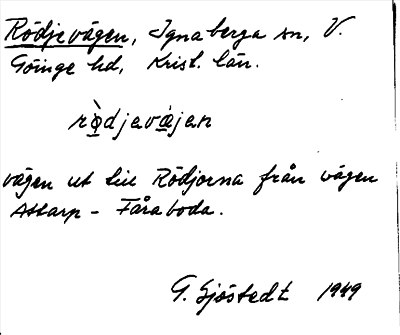 Rödjevägen, Ignaberga sn, V.
Göinge hd, Krist. län.
rò̱djevá̱jen
vägen ut till Rödjorna från vägen
Attarp - Fåraboda.
G. Sjöstedt 1949